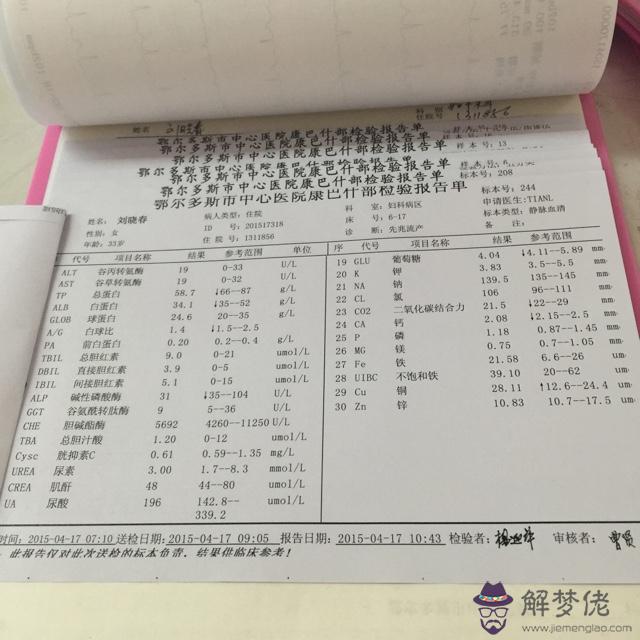 姓名
科 别
住院号 1311856
鄂尔多斯市中心医院康巴什部检验报告单
鄂尔多斯市中心医院康巴什部检验报告单
样本号: 13
鄂尔多斯市中心医院康巴什部检验报告单
鄂尔多斯市中心医院康巴什部检验报告单
标本号: 208
鄂尔多斯市中心医院康巴什部检验报告单
标本号: 244
姓名: 刘晓春 病人类型: 住院 科 室: 妇科病区 申请医生: TIANL
性别: 女 ID 号: 201517318 床 号: 6-17 标本类型: 静脉血清
年龄: 33岁 住 院 号: 1311856 诊 断: 先兆流产 备 注:
代号 项目名称 结果 参考范围 单位
ALT 谷丙转氨酶 19 0--33 U/L
AST 谷草转氨酶 19 0--32 U/L
TP 总蛋白 58.7 ↓66--87 g/L
ALB 白蛋白 34.1 ↓35--52 g/L
GLOB 球蛋白 24.6 20--35 g/L
A/G 白球比 1.4 ↓1.5--2.5
PA 前白蛋白 0.20 0.2--0.4 g/L
TBIL 总胆红素 9.0 0-21 umol/L
DBIL 直接胆红素 3.9 0--5 umol/L
IBIL 间接胆红素 5.1 0--15 umol/L
ALP 碱性磷酸酶 31 ↓35--104 U/L
GGT 谷氨酰转肽酶 9 5--36 U/L
CHE 胆碱酯酶 5692 4260--11250 U/L
TBA 总胆汁酸 1.20 0-12 umol/L
Cysc 胱抑素C 0.61 0.59--1.35 mg/L
UREA 尿素 3.00 1.7--8.3 mmol/L
CREA 肌酐 48 44--80 umol/L
UA 尿酸 196 142.8--339.2 umol/L
序 代号 项目名称 结果 参考范围
19 GLU 葡萄糖 4.04 ↓4.11--5.89 mm
20 K 钾 3.83 3.5--5.5 mm
21 NA 钠 139.5 135--145 mm
22 CL 氯 106 96--111 mm
23 CO2 二氧化碳结合力 21.5 ↓22--29 mm
24 CA 钙 2.08 ↓2.15--2.5 mm
25 P 磷 1.18 0.87--1.45 mm
26 MG 镁 0.75 0.7--1.05 mm
27 Fe 铁 21.58 6.6--26 um
28 UIBC 不饱和铁 39.10 20--62 um
29 Cu 铜 28.11 ↑12.6--24.4 um
30 Zn 锌 10.83 10.7--17.5 um
时间: 2015-04-17 07:10 送检日期: 2015-04-17 09:05 报告日期: 2015-04-17 10:43 检验者: 审核者:
此报告仅对此次送检的标本负责, 结果供临床参考!
解梦佬
www.jiemenglao.com